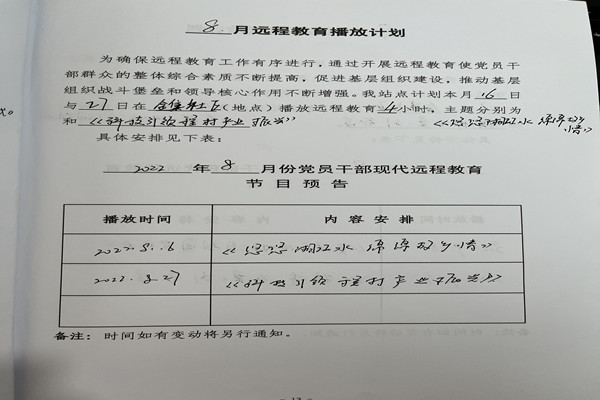 8 月远程教育播放计划
为确保远程教育工作有序进行,通过开展远程教育使党员干
部群众的整体综合素质不断提高,促进基层组织建设,推动基层
组织战斗堡垒和领导核心作用不断增强。我站点计划本月 16 日
与 27 日在 社区(地点)播放远程教育 4 小时,主题分别为
和《科技引领 村产业振兴》 《悠悠湖江水 故乡情》
具体安排见下表:
2022 年 8 月份党员干部现代远程教育
节目预告
播放时间 内容安排
2022.8.16 《悠悠湖江水 故乡情》
2022.8.27 《科技引领 村产业振兴》
备注:时间如有变动将另行通知。